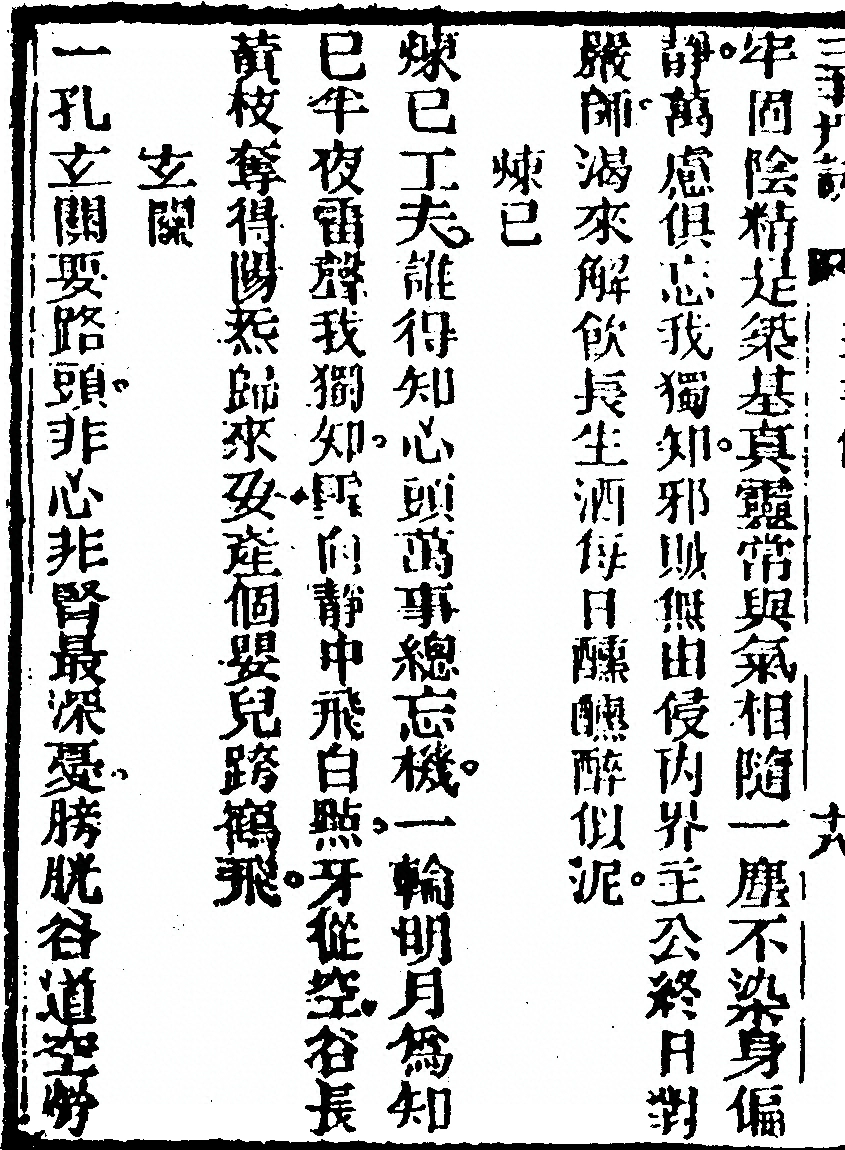 十八
牢固陰精是築基真靈常與氣相隨一塵不染身偏
靜。萬慮俱忘我獨知。邪賊無由侵內界主公終日對
嚴師。渴來解飲長生酒每日醺醺醉似泥。
煉已
煉已工夫。誰得知心頭萬事總忘機。一輪明月爲知
已半夜雷聲我獨知。向靜中飛白點。牙從空谷長
黄枝奪得陽炁歸來產個嬰兒跨鶴飛。
玄關
一孔玄關要路頭。非心非腎最深憂。膀胱谷道空勞